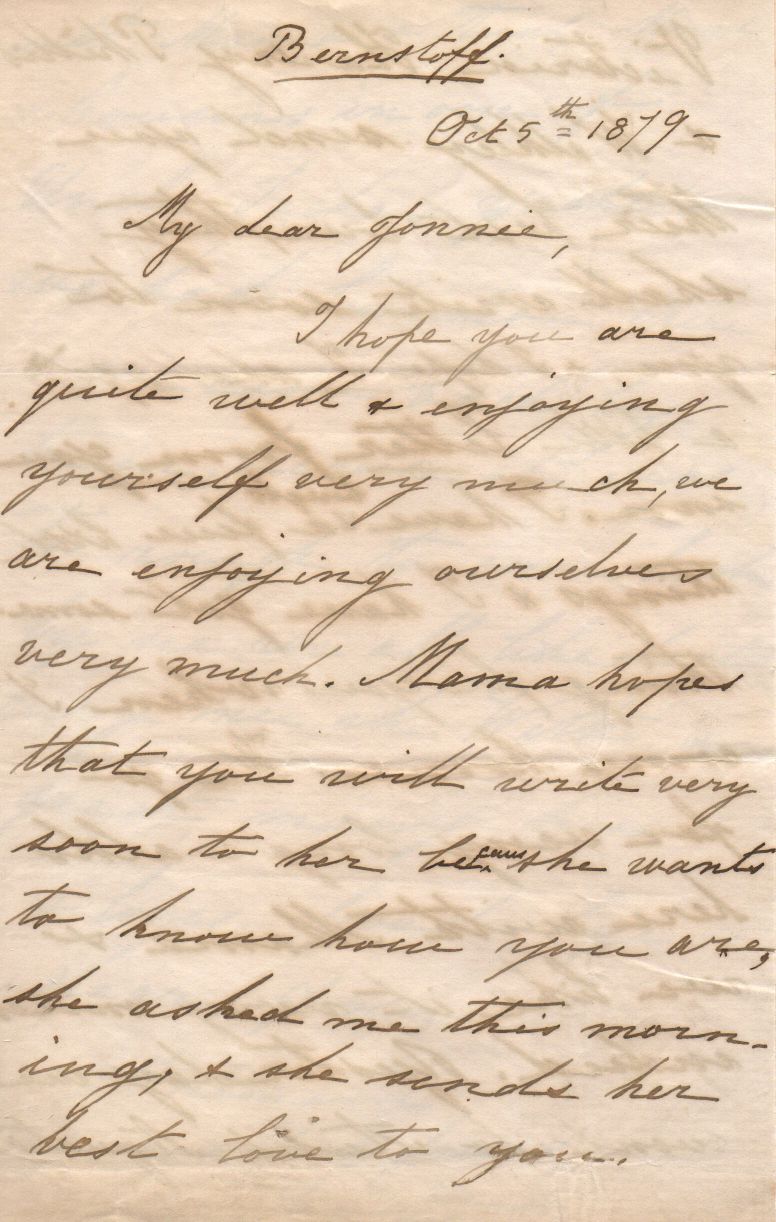 Bernstoff.
Oct 5th 1879 –
My dear Jonnie,
I hope you are
quite well & enjoying
yourself very much, we
are enjoying ourselves
very much. Mama hopes
that you will write very
soon to her because she wants
to know how you are,
she asked me this morn-
ing, & she sends her
best love to you.